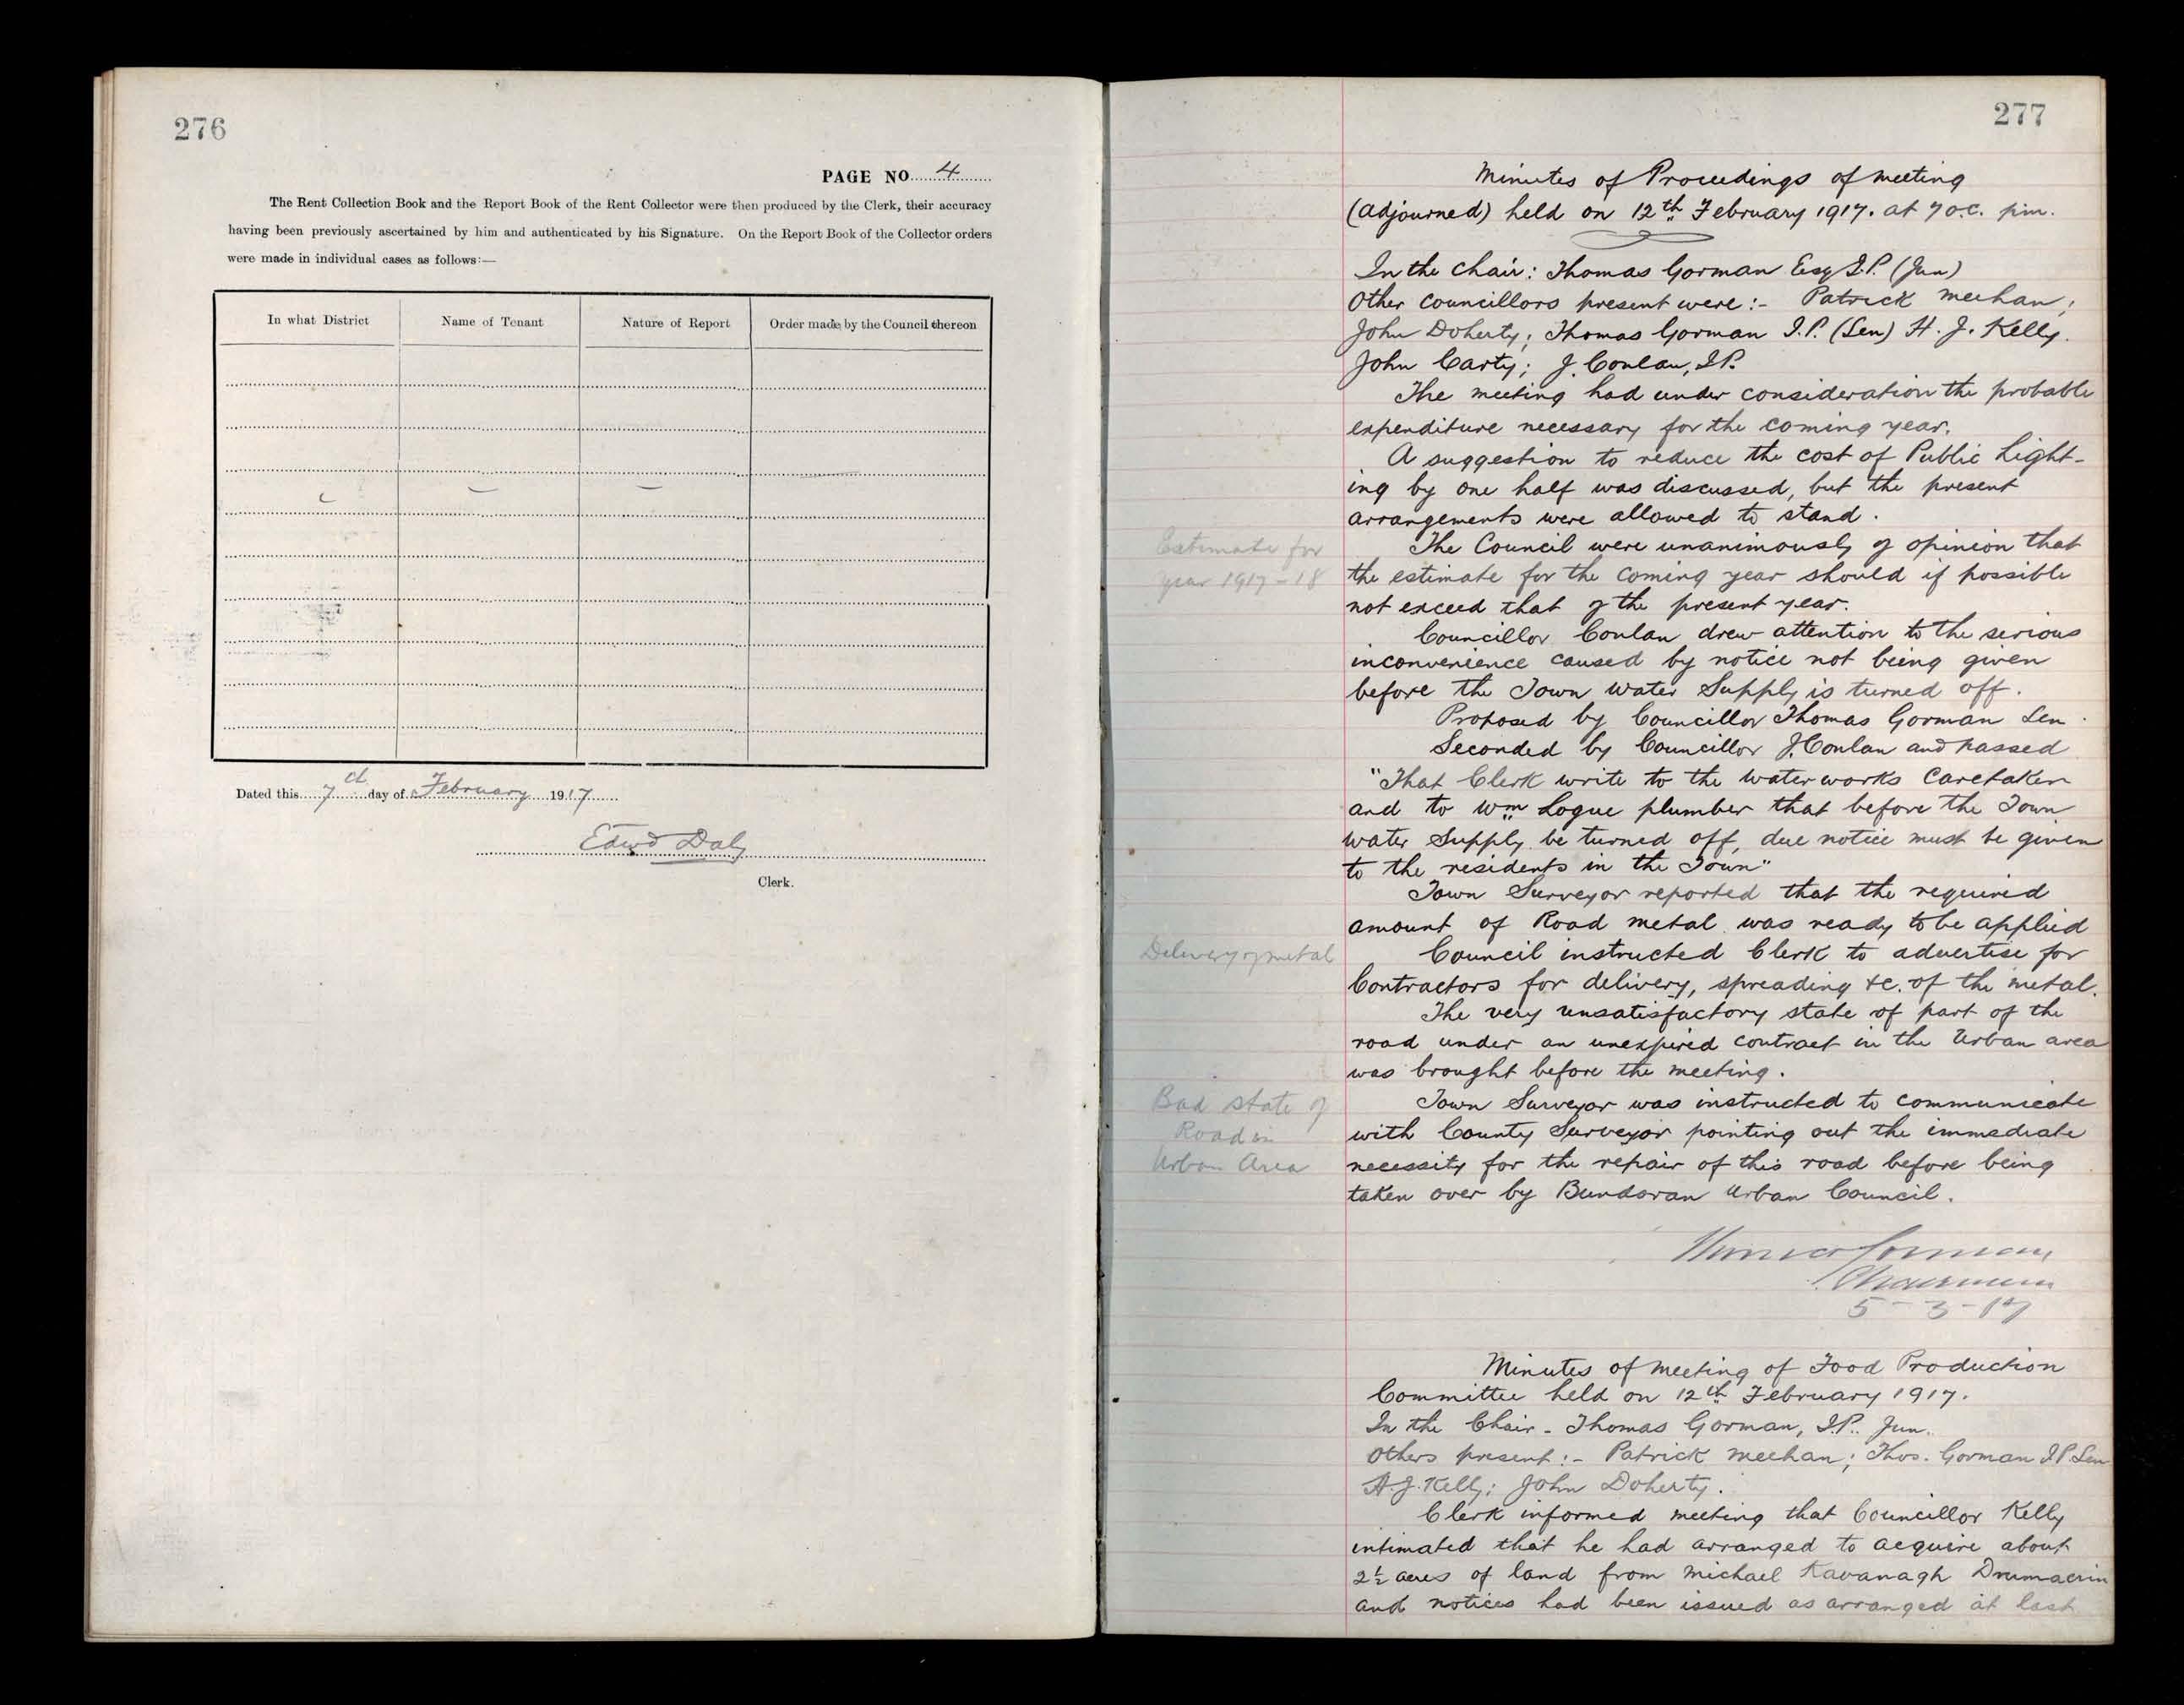 276
PAGE NO. 4
The Rent Collection Book and the Report Book of the Rent Collector were then produced by the Clerk, their accuracy
having been previously ascertained by him and authenticated by his Signature. On the Report Book of the Collector orders
were made in individual cases as follows:—
In what District Name of Tenant Nature of Report Order made by the Council thereon
Dated this 7th day of February 1917
Edwd Daly
Clerk.
277
Minutes of Proceedings of meeting
(adjourned) held on 12th February 1917. at 7 o.c. pm.
In the Chair: Thomas Gorman Esq J.P. (Jun)
Other Councillors present were:- Patrick Meehan;
John Doherty; Thomas Gorman J.P. (Sen) H. J. Kelly.
John Carty; J. Conlan, J.P.
The meeting had under consideration the probable
expenditure necessary for the coming year.
A suggestion to reduce the cost of Public Light-
ing by one half was discussed, but the present
arrangements were allowed to stand.
Estimate for
year 1917-18
The Council were unanimously of opinion that
the estimate for the coming year should if possible
not exceed that of the present year.
Councillor Conlan drew attention to the serious
inconvenience caused by notice not being given
before the Town Water Supply is turned off.
Proposed by Councillor Thomas Gorman Sen.
Seconded by Councillor J. Conlan and passed
"That Clerk write to the waterworks Caretaker
and to Wm Logue plumber that before the Town
water Supply be turned off, due notice must be given
to the residents in the Town"
Town Surveyor reported that the required
amount of Road metal was ready to be applied
Delivery of metal
Council instructed Clerk to advertise for
Contractors for delivery, spreading &c. of the metal.
The very unsatisfactory state of part of the
road under an unexpired contract in the Urban area
was brought before the meeting.
Bad state of
Road in
Urban Area
Town Surveyor was instructed to communicate
with County Surveyor pointing out the immediate
necessity for the repair of this road before being
taken over by Bundoran Urban Council.
Thomas Gorman
Chairman
5-3-17
Minutes of meeting of Food Production
Committee held on 12th February 1917.
In the Chair - Thomas Gorman, J.P. Jun.
Others present:- Patrick Meehan; Thos. Gorman J.P. Sen
H. J. Kelly; John Doherty.
Clerk informed meeting that Councillor Kelly
intimated that he had arranged to acquire about
2½ acres of land from Michael Kavanagh Drumacrin
and notices had been issued as arranged at last